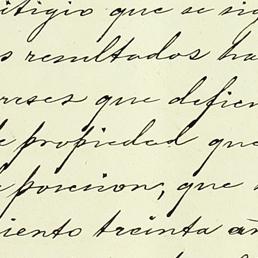 itigio que se sig
s resultados ha
reses que defien
e propiedad que
porcion, que
iento treinta añ